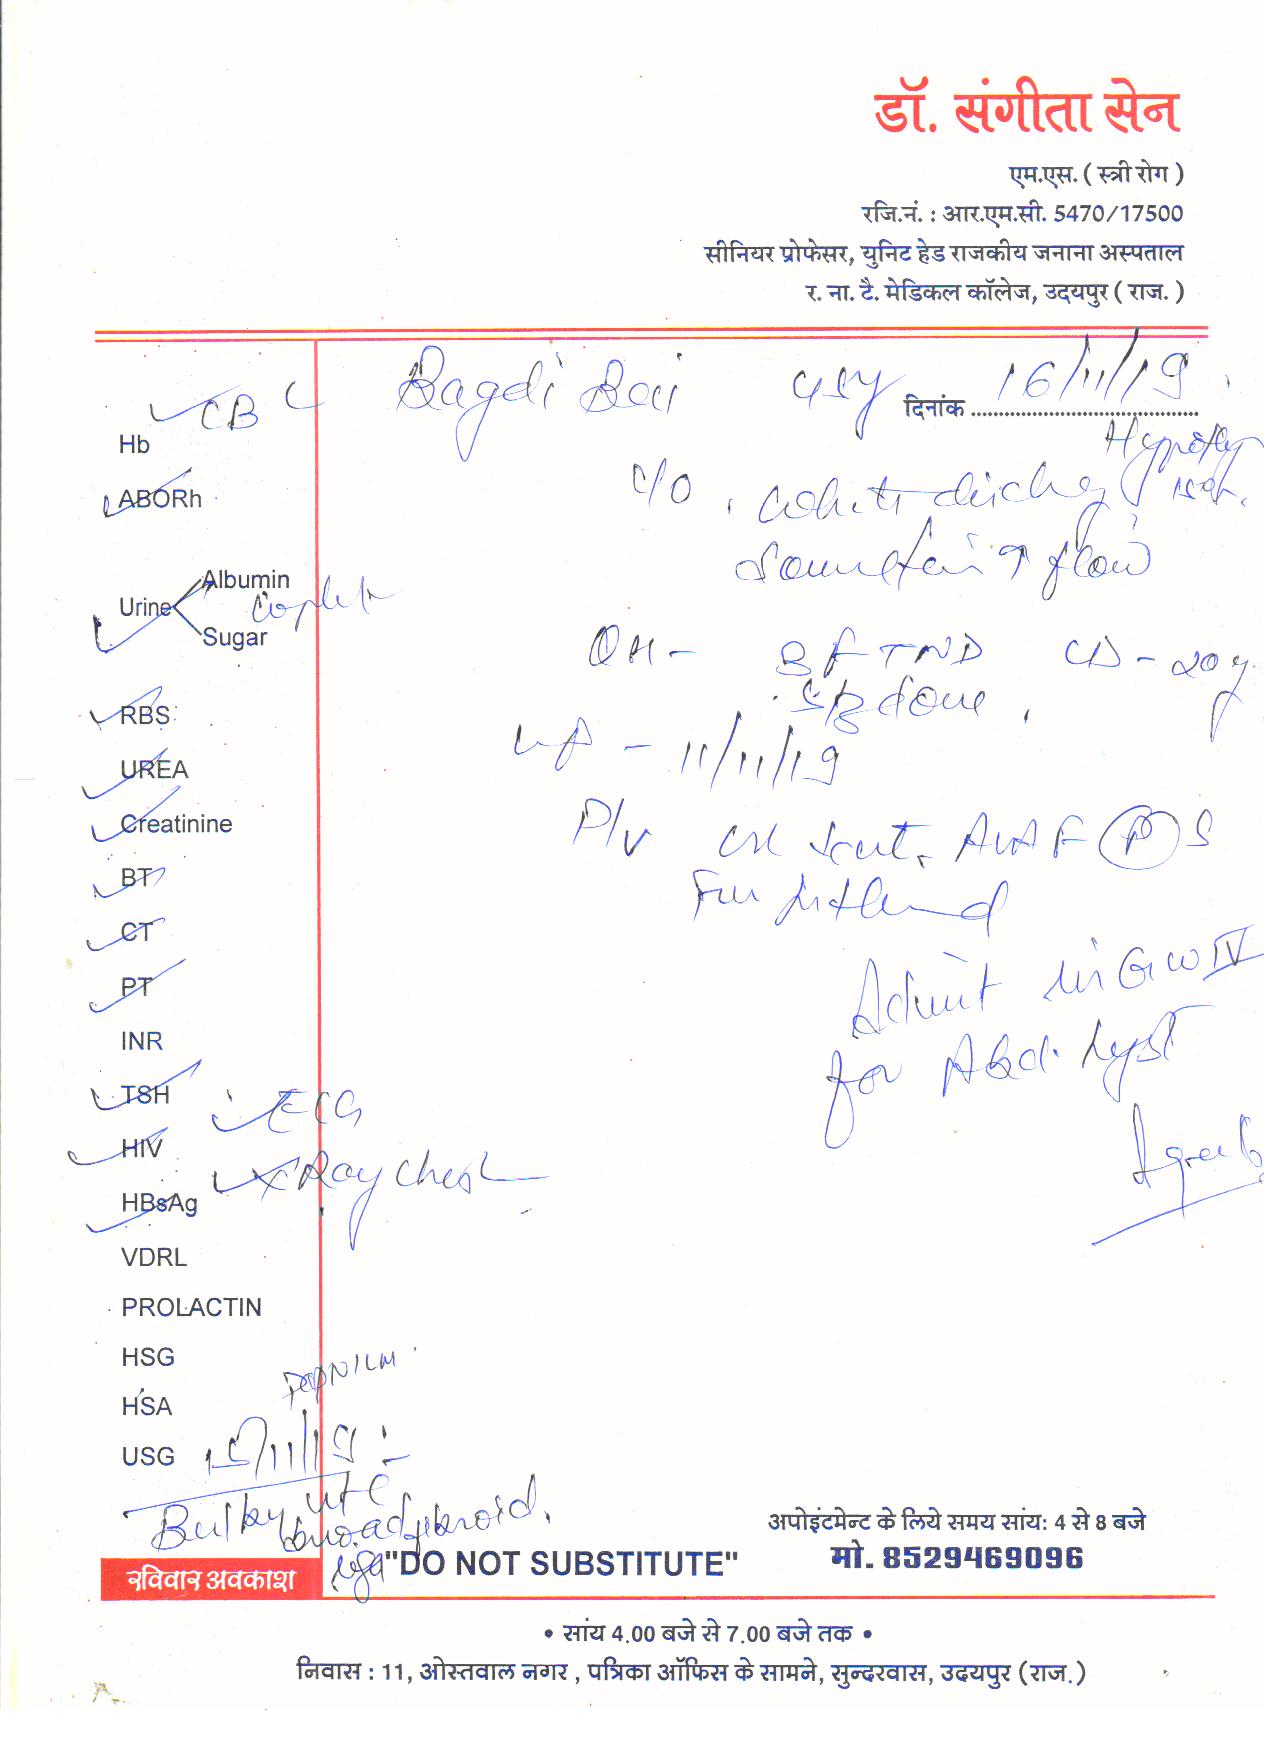 डॉ. संगीता सेन
एम.एस. ( स्त्री रोग )
रजि.नं. : आर.एम.सी. 5470/17500
सीनियर प्रोफेसर, युनिट हेड राजकीय जनाना अस्पताल
र. ना. टै. मेडिकल कॉलेज, उदयपुर ( राज. )
CBC Bagdi Bai 45y दिनांक 16/11/19
Hb
ABORh
C/O white
flow
Albumin
Urine Complete
Sugar
OH - 8 FTND CD - 20y
done
RBS
LMP - 11/11/19
UREA
Creatinine
P/V CX
BT
CT
Admit in GW IV
PT
INR
for Abd. hyst
TSH
ECG
HIV
X Ray Chest
HBsAg
VDRL
PROLACTIN
HSG
HSA
USG 15/11/19 :-
Bulky ut c
broad fibroid.
अपोइंटमेन्ट के लिये समय सांय: 4 से 8 बजे
मो. 8529469096
"DO NOT SUBSTITUTE"
रविवार अवकाश
• सांय 4.00 बजे से 7.00 बजे तक •
निवास : 11, ओस्तवाल नगर , पत्रिका ऑफिस के सामने, सुन्दरवास, उदयपुर (राज.)